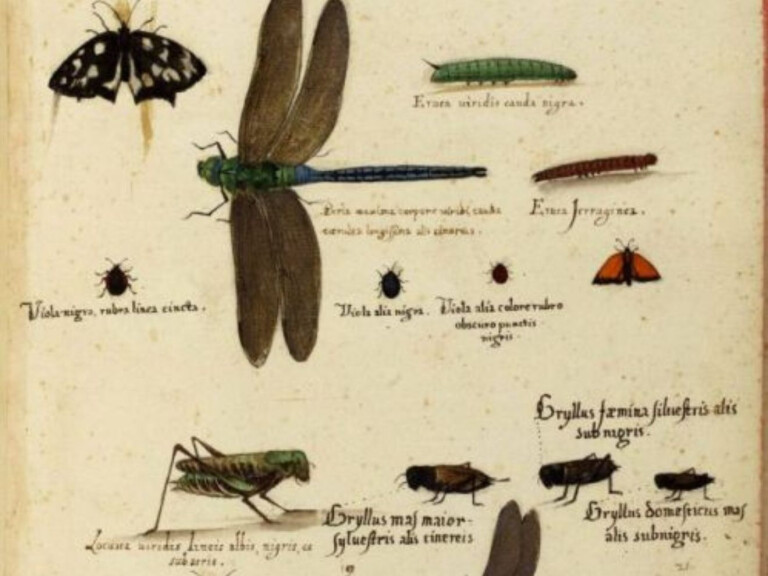 Eruca viridis cauda nigra.
Perla maxima corpore viridi cauda
cerulea longissima alis cinereis.
Eruca ferruginea.
Viola nigra, rubra linea cincta.
Viola alia nigra.
Viola alia colore rubro
obscuro punctis
nigris.
Gryllus fæmina silvestris alis
subnigris.
Gryllus mas maior
sylvestris alis cinereis
Gryllus domesticus mas
alis subnigris.
Locusta viridis lineis albis, nigris,